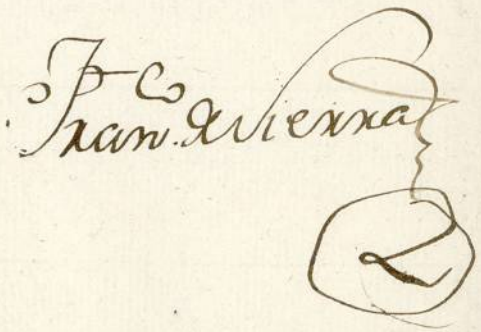 Fran.co de Sierra